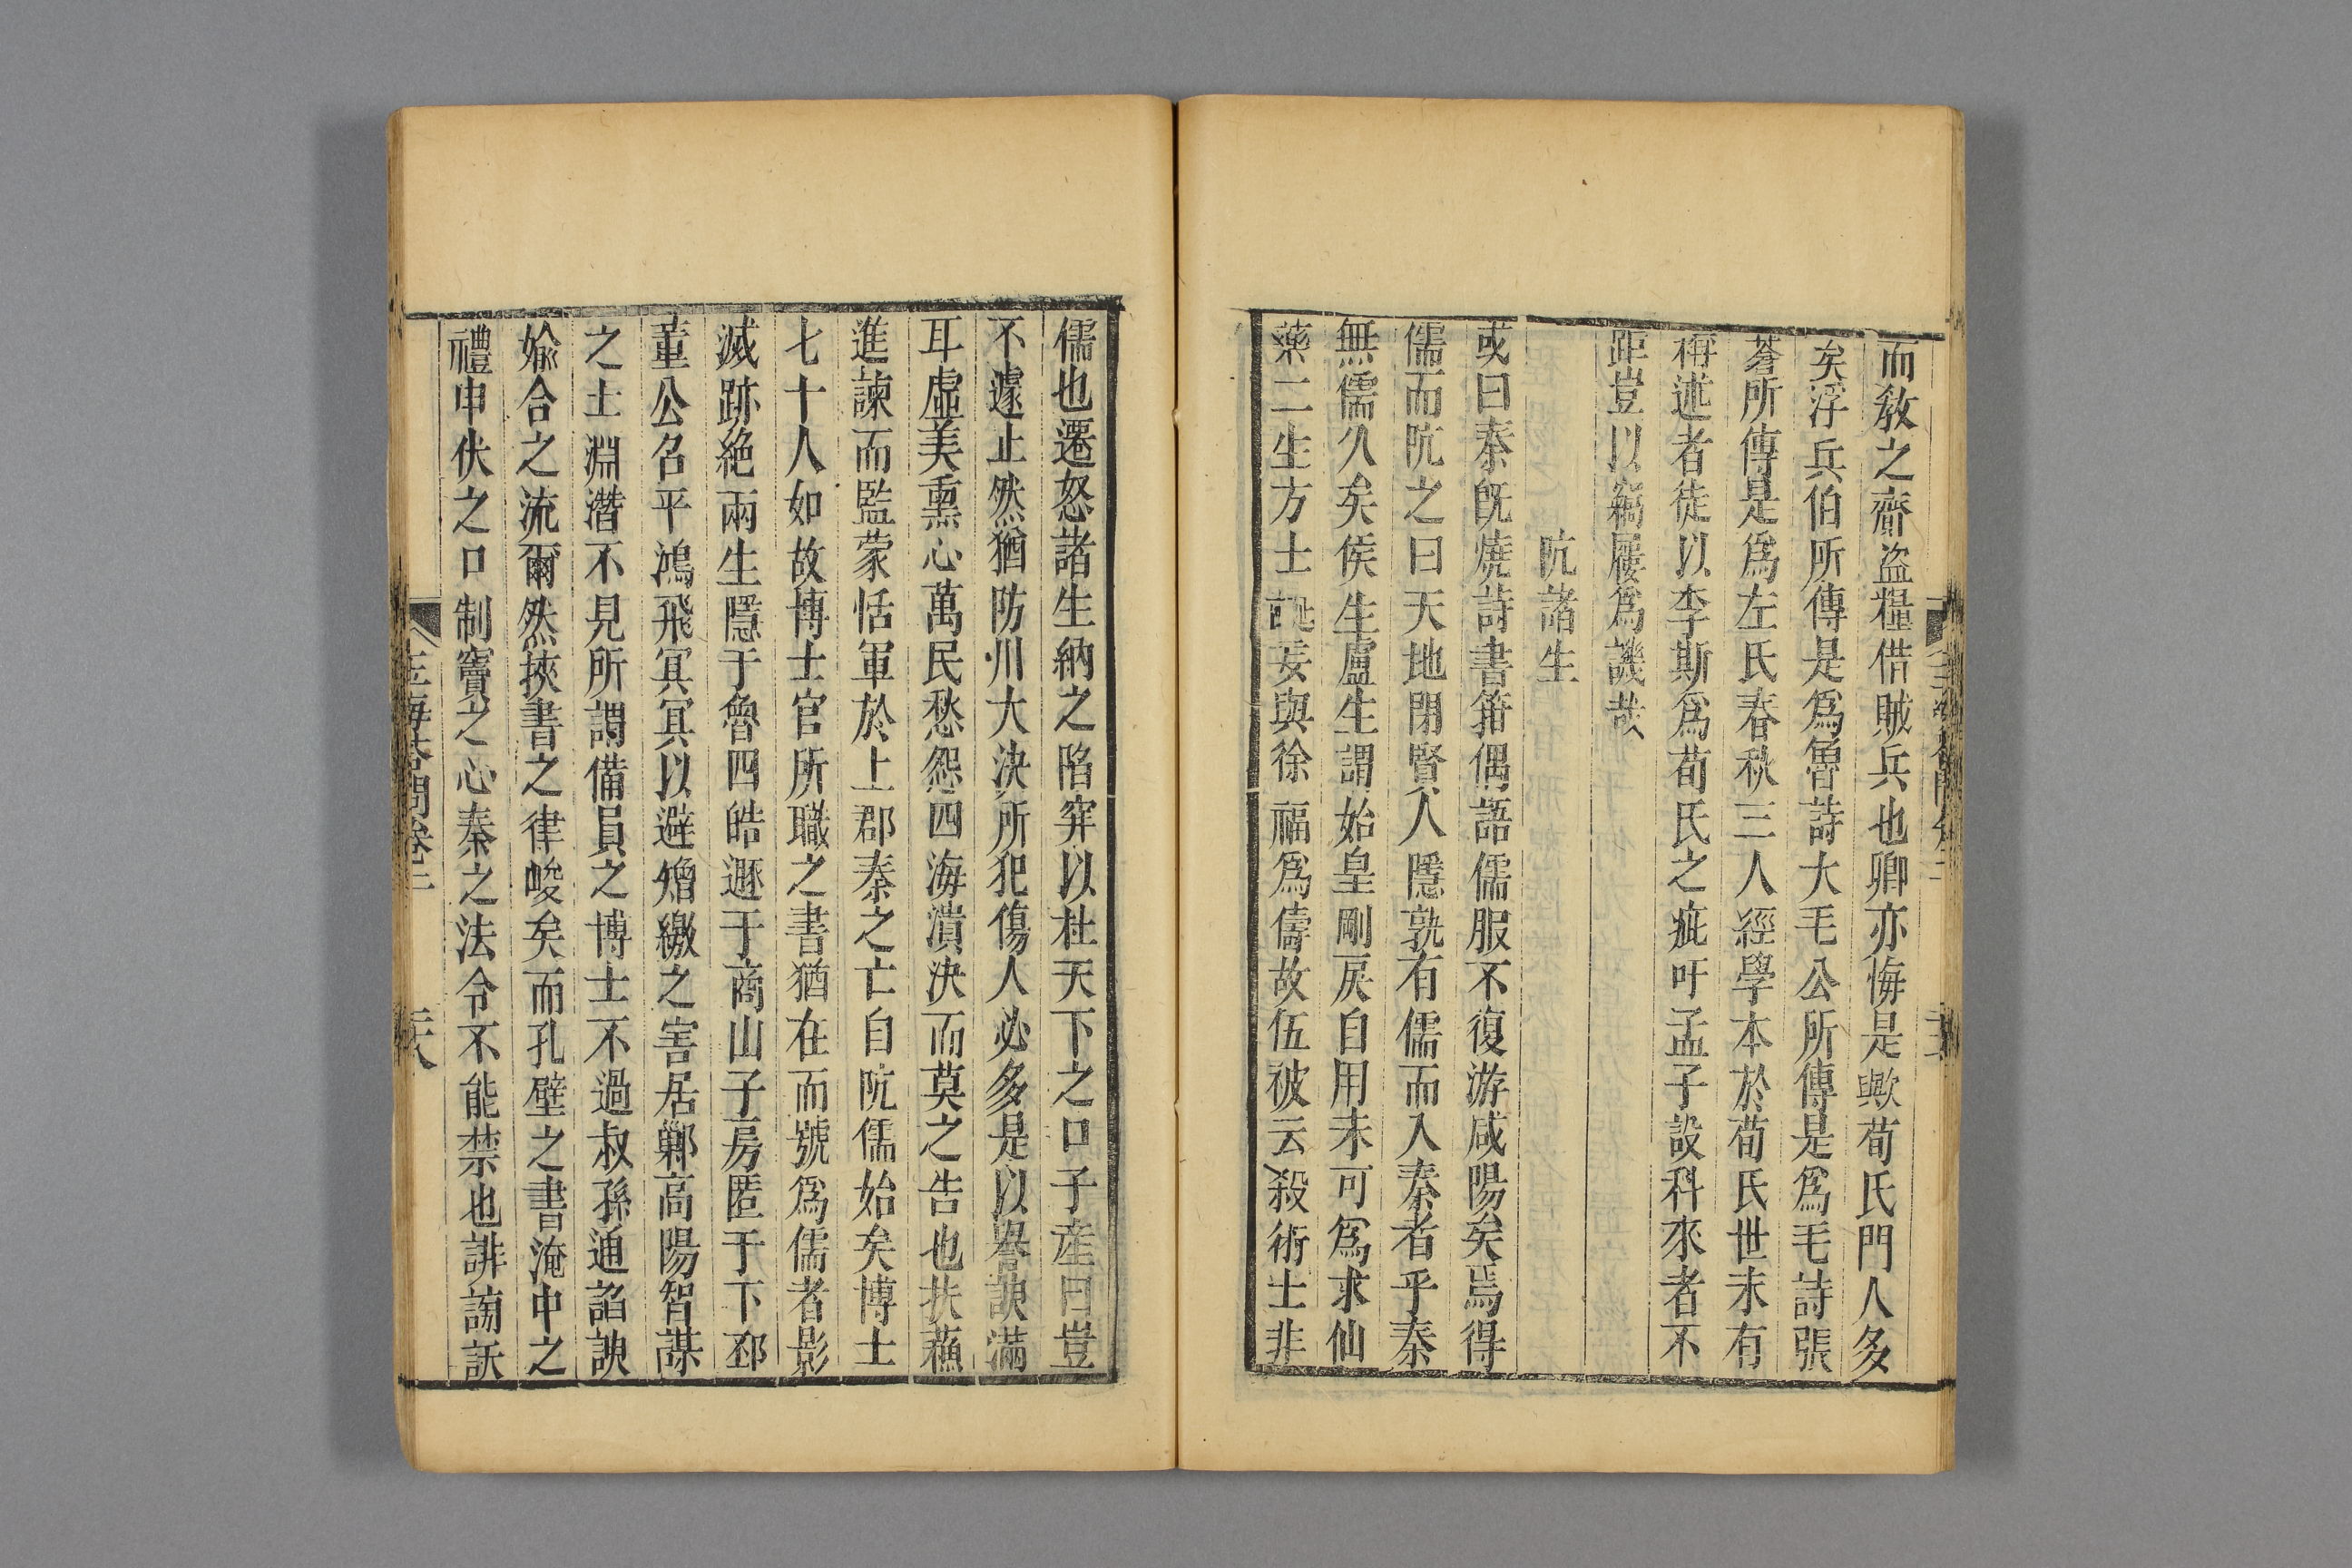 而敎之齎盗糧借賊兵也卿亦悔是歟荀氏門人多
矣浮丘伯所傳是爲魯詩大毛公所傳是爲毛詩張
蒼所傳是爲左氏春秋三人經學本於荀氏世未有
稱述者徒以李斯爲荀氏之疵吁孟子設科來者不
距豈以竊屨爲譏哉
阬諸生
或曰秦旣燒詩書箝偶語儒服不復游咸陽矣焉得
儒而阬之曰天地閉賢人隱孰有儒而入秦者乎秦
無儒久矣侯生盧生謂始皇剛戾自用未可爲求仙
藥二生方士誕妄與徐福爲儔故伍被云殺術士非
儒也遷怒諸生納之陷穽以杜天下之口子産曰豈
不遽止然猶防川大決所犯傷人必多是以譽諛滿
耳虛美熏心萬民愁怨四海潰決而莫之告也扶蘇
進諫而監蒙恬軍於上郡秦之亡自阬儒始矣博士
七十人如故博士官所職之書猶在而號爲儒者影
滅跡絶兩生隱于魯四皓遯于商山子房匿于下邳
董公名平鴻飛冥冥以避矰繳之害居鄛高陽智謀
之士淵潛不見所謂備員之博士不過叔孫通諂諛
婾合之流爾然挾書之律峻矣而孔壁之書淹中之
禮申伏之口制竇之心秦之法令不能禁也誹謗訞
答問卷三
三八